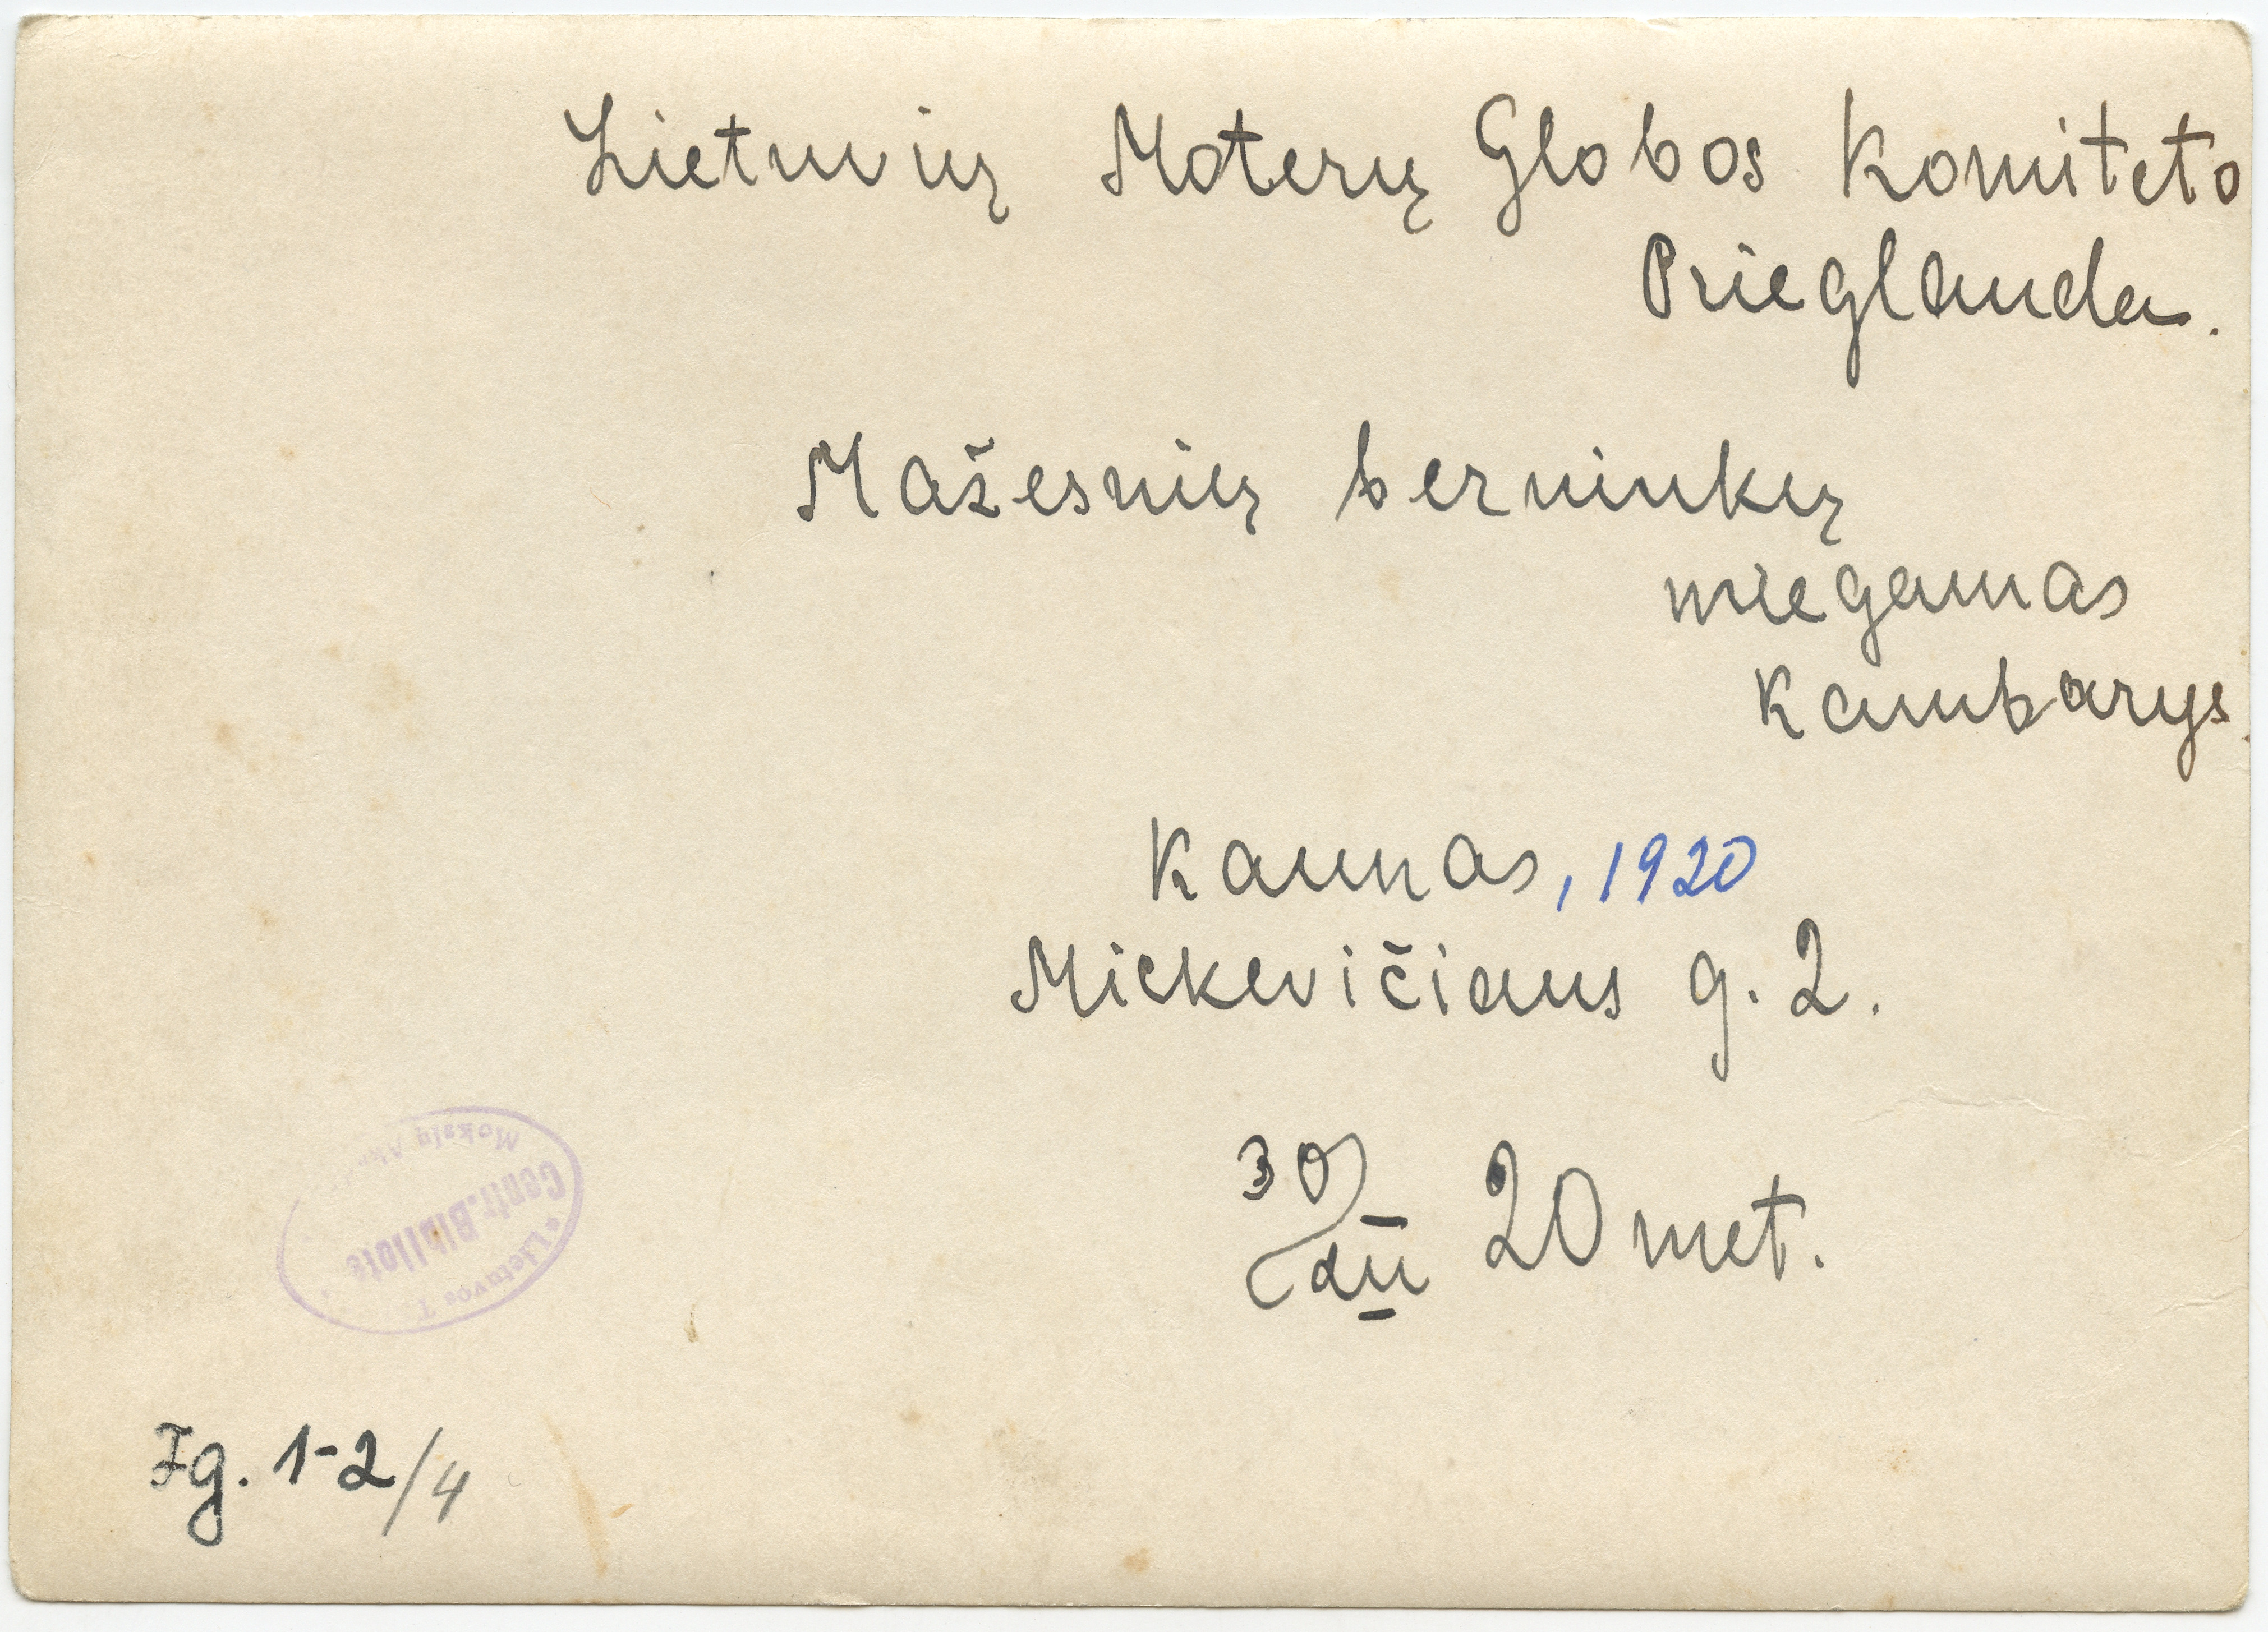 Lietuvių Moterų Globos Komiteto
Prieglauda.
Mažesnių berninkų
miegamas
kambarys.
Kaunas, 1920
Mickevičiaus g. 2.
30/XII 20 met.
Centr. Bibliote
Mokslų
Lietuvos T
Fg. 1-2/4